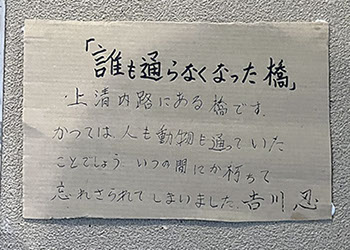 「誰も通らなくなった橋」
・上清内路にある橋です。
かつては人も動物も通っていた
ことでしょう いつの間にか朽ちて
忘れさられてしまいました。吉川 忍